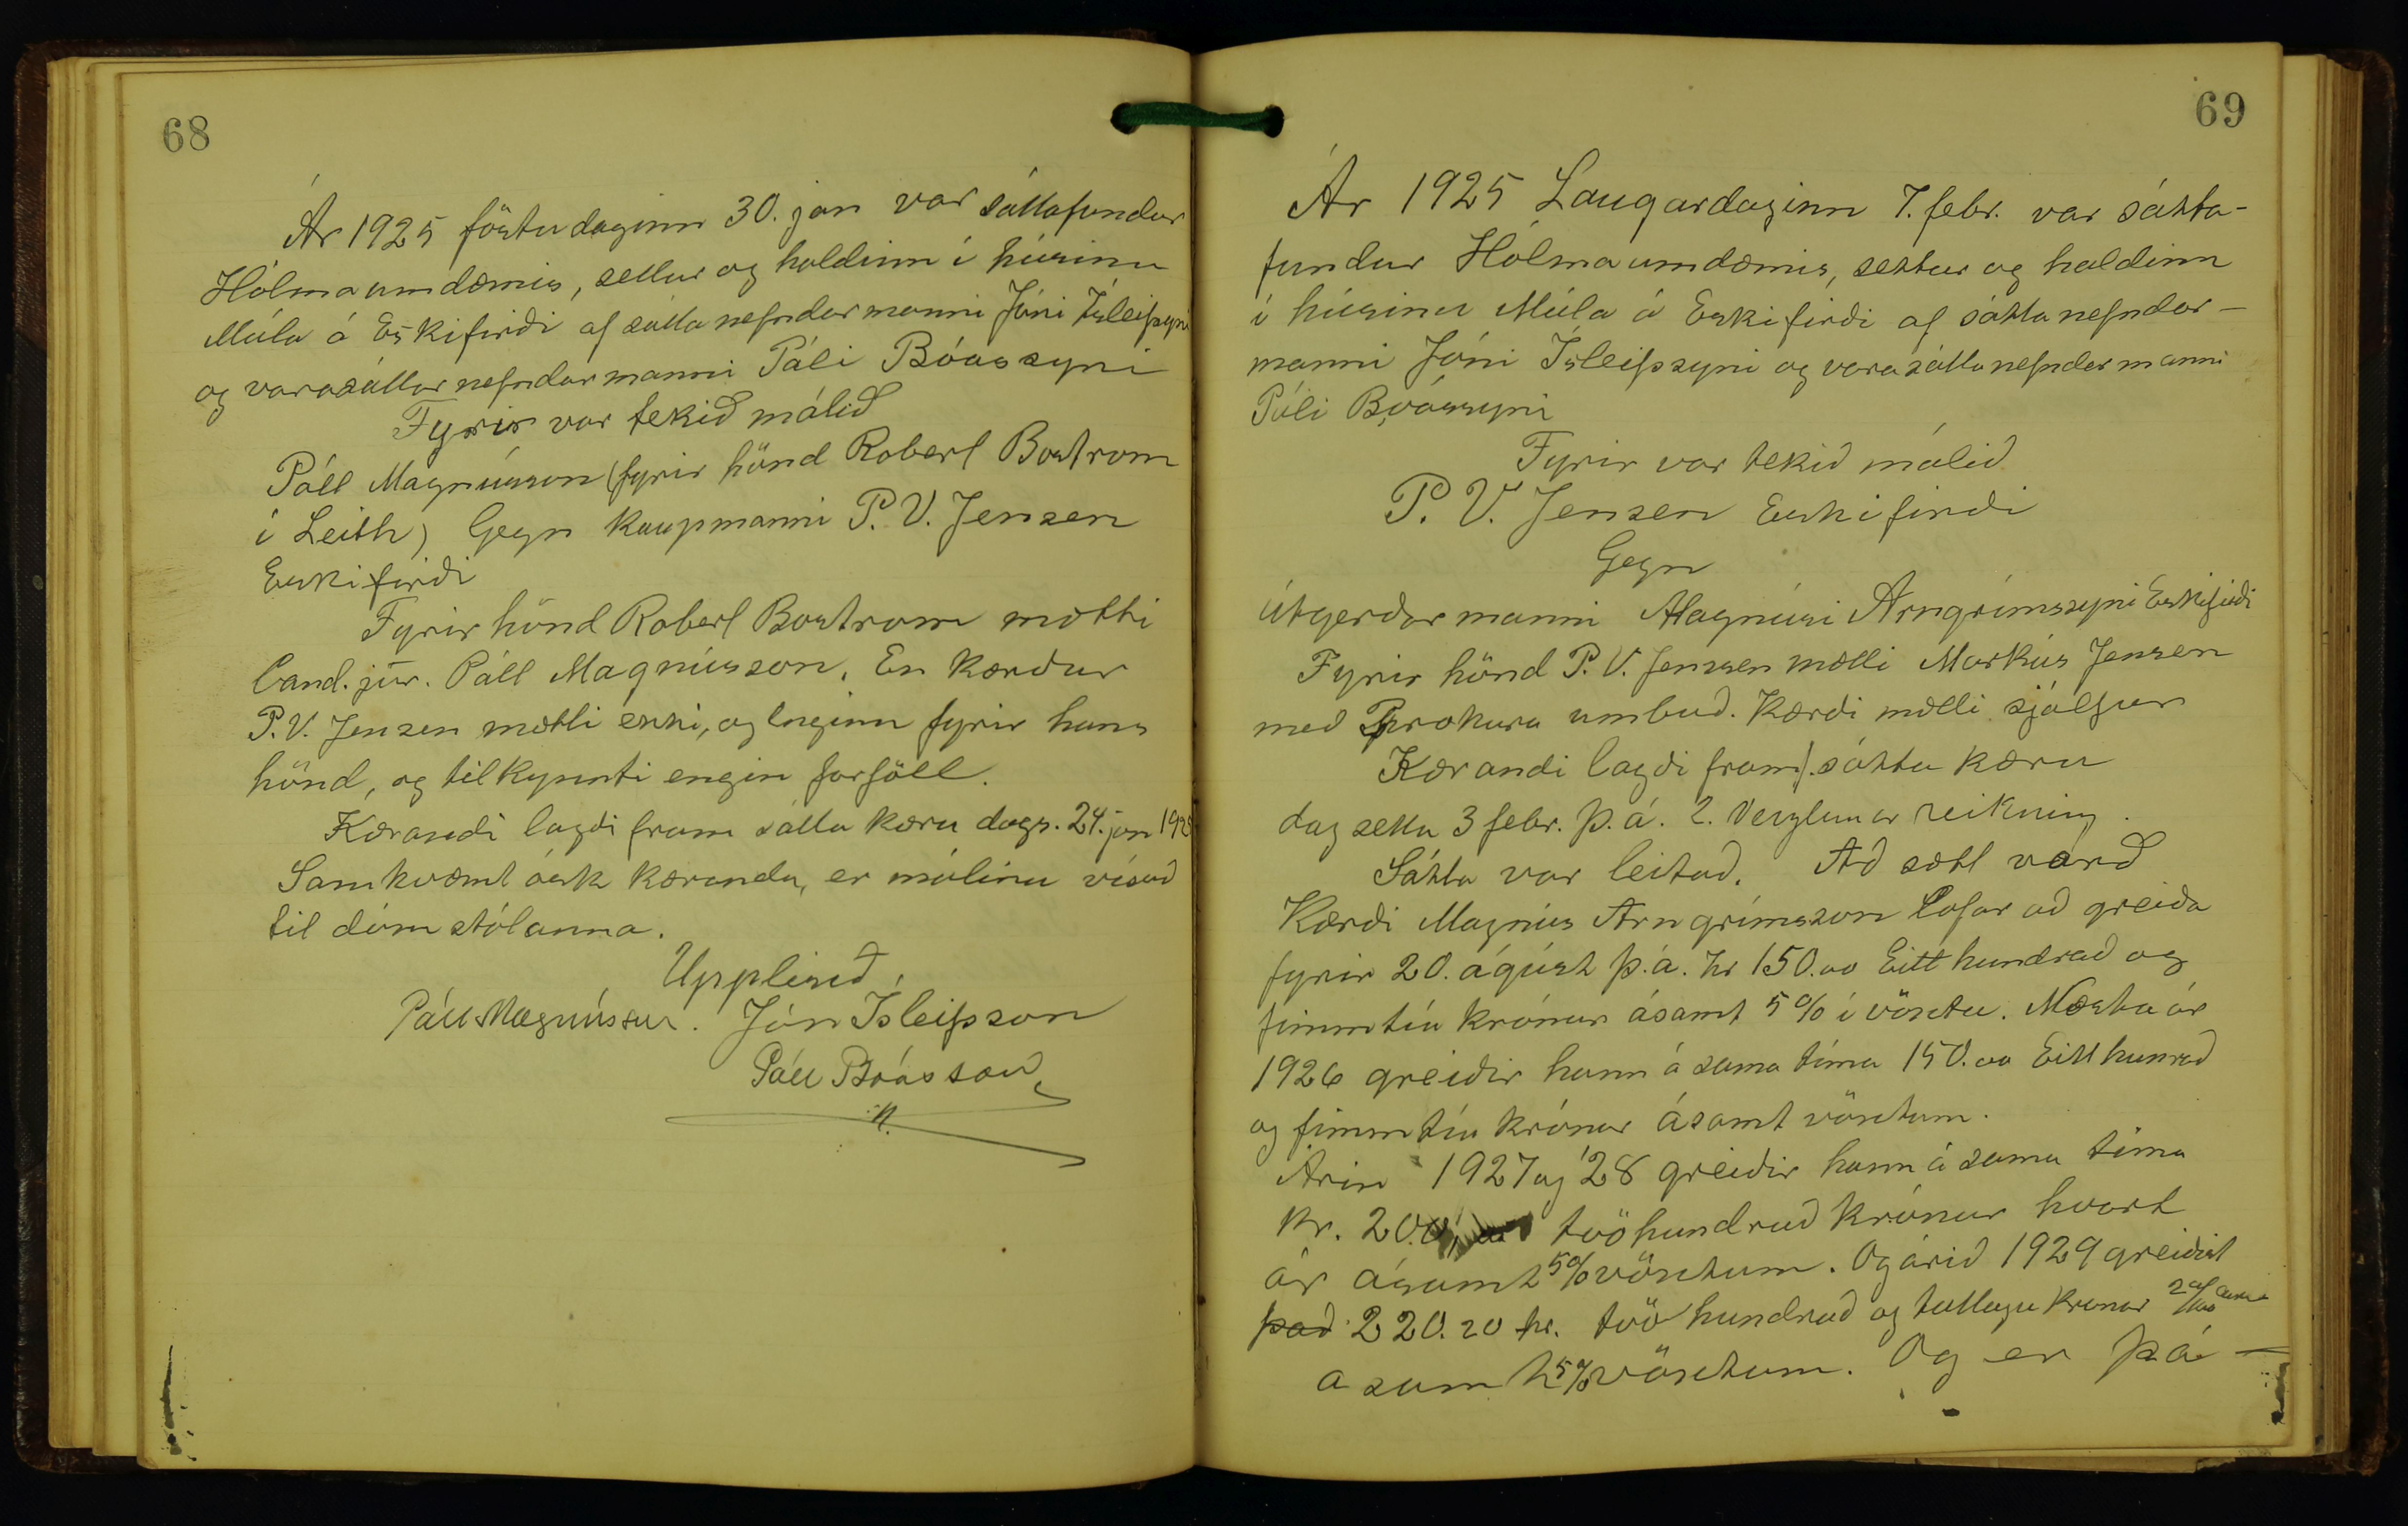 68
Ár 1925 föstudaginn 30. jan var sáttafundur
Hólmaumdæmis, settur og haldinn í húsinu
Múla á Eskifirði af sáttanefndarmanni Jóni Ísleifsyni
og varasáttarnefndarmanni Páli Bóassyni
Fyrir var tekið málið
Páll Magnússon (fyrir hönd Robert Bostrom
í Leith) Gegn kaupmanni P. V. Jensen
Eskifirði
Fyrir hönd Robert Bostrom mætti
Cand. júr. Páll Magnússon. En kærður
P.V. Jensen mætti ekki, og enginn fyrir hans
hönd, og tilkynnti engin forföll.
Kærandi lagði fram sátta kæru dags. 24. jan 1925
Samkvæmt ósk kæranda, er málinu vísað
til dómstólanna.
Upplesið,
Páll Magnússon. Jón Ísleifsson
Páll Bóasson
69
Ár 1925 Laugardaginn 7. febr. var sátta-
fundur Hólmaumdæmis, settur og haldinn
í húsinu Múla á Eskifirði af sáttanefndar-
manni Jóni Ísleifssyni og varasáttanefndarmanni
Páli Bóassyni
Fyrir var tekið málið
P. V. Jensen Eskifirði
Gegn
útgerðarmanni Magnúsi Arngrímssyni Eskifirði
Fyrir hönd P. V. Jensen mætti Markús Jensen
með Prokura umboð. Kærði mætti sjálfur
Kærandi lagði fram 1. sátta kæru
dagsettu 3 febr. þ.á. 2. Verzlunar reikning.
Sátta var leitað. Að sætt varð
Kærði Magnús Arngrímsson lofar að greiða
fyrir 20. ágúst þ.á. kr 150.00 Eitt hundrað og
fimmtíu krónur ásamt 5% í vöxtu. Næsta ár
1926 greiðir hann á sama tíma 150.00 Eitt hunrað
og fimmtíu krónur ásamt vöxtum.
Árin 1927 og '28 greiðir hann á sama tíma
kr. 200, tvöhundruð krónur hvort
ár ásamt 5% vöxtum. Og árið 1929 greiðist
það 220.20 kr. tvö hundruð og tuttugu krónur 20/100 aura
ásamt 5% vöxtum. Og er þá —